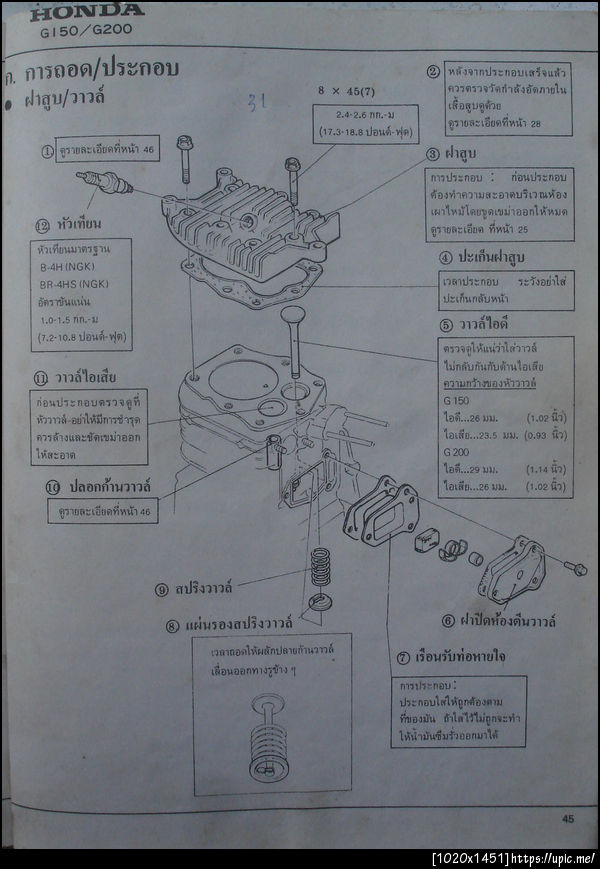 HONDA
G150/G200
ก. การถอด/ประกอบ
● ฝาสูบ/วาวล์
31
8 × 45(7)
2.4-2.6 กก.-ม
(17.3-18.8 ปอนด์-ฟุต)
① ดูรายละเอียดที่หน้า 46
② หลังจากประกอบเสร็จแล้ว
ควรตรวจวัดกำลังอัดภายใน
เสื้อสูบดูด้วย
ดูรายละเอียดที่หน้า 28
③ ฝาสูบ
การประกอบ : ก่อนประกอบ
ต้องทำความสะอาดบริเวณห้อง
เผาไหม้โดยขูดเขม่าออกให้หมด
ดูรายละเอียด ที่หน้า 25
④ ปะเก็นฝาสูบ
เวลาประกอบ ระวังอย่าใส่
ปะเก็นกลับหน้า
⑤ วาวล์ไอดี
ตรวจดูให้แน่ว่าใส่วาวล์
ไม่กลับกันกับด้านไอเสีย
ความกว้างของหัววาวล์
G 150
ไอดี...26 มม. (1.02 นิ้ว)
ไอเสีย...23.5 มม. (0.93 นิ้ว)
G 200
ไอดี...29 มม. (1.14 นิ้ว)
ไอเสีย...26 มม. (1.02 นิ้ว)
⑫ หัวเทียน
หัวเทียนมาตรฐาน
B-4H (NGK)
BR-4HS (NGK)
อัตราขันแน่น
1.0-1.5 กก.-ม
(7.2-10.8 ปอนด์-ฟุต)
⑪ วาวล์ไอเสีย
ก่อนประกอบตรวจดูที่
หัววาวล์-อย่าให้มีการชำรุด
ควรล้างและขัดเขม่าออก
ให้สะอาด
⑩ ปลอกก้านวาวล์
ดูรายละเอียดที่หน้า 46
⑨ สปริงวาวล์
⑧ แผ่นรองสปริงวาวล์
เวลาถอดให้ผลักปลายก้านวาวล์
เลื่อนออกทางรูข้าง ๆ
⑥ ฝาปิดห้องตีนวาวล์
⑦ เรือนรับท่อหายใจ
การประกอบ:
ประกอบใส่ให้ถูกต้องตาม
ที่ของมัน ถ้าใส่ไว้ไม่ถูกจะทำ
ให้น้ำมันซึมรั่วออกมาได้
45
[1020x1451]https://upic.me/